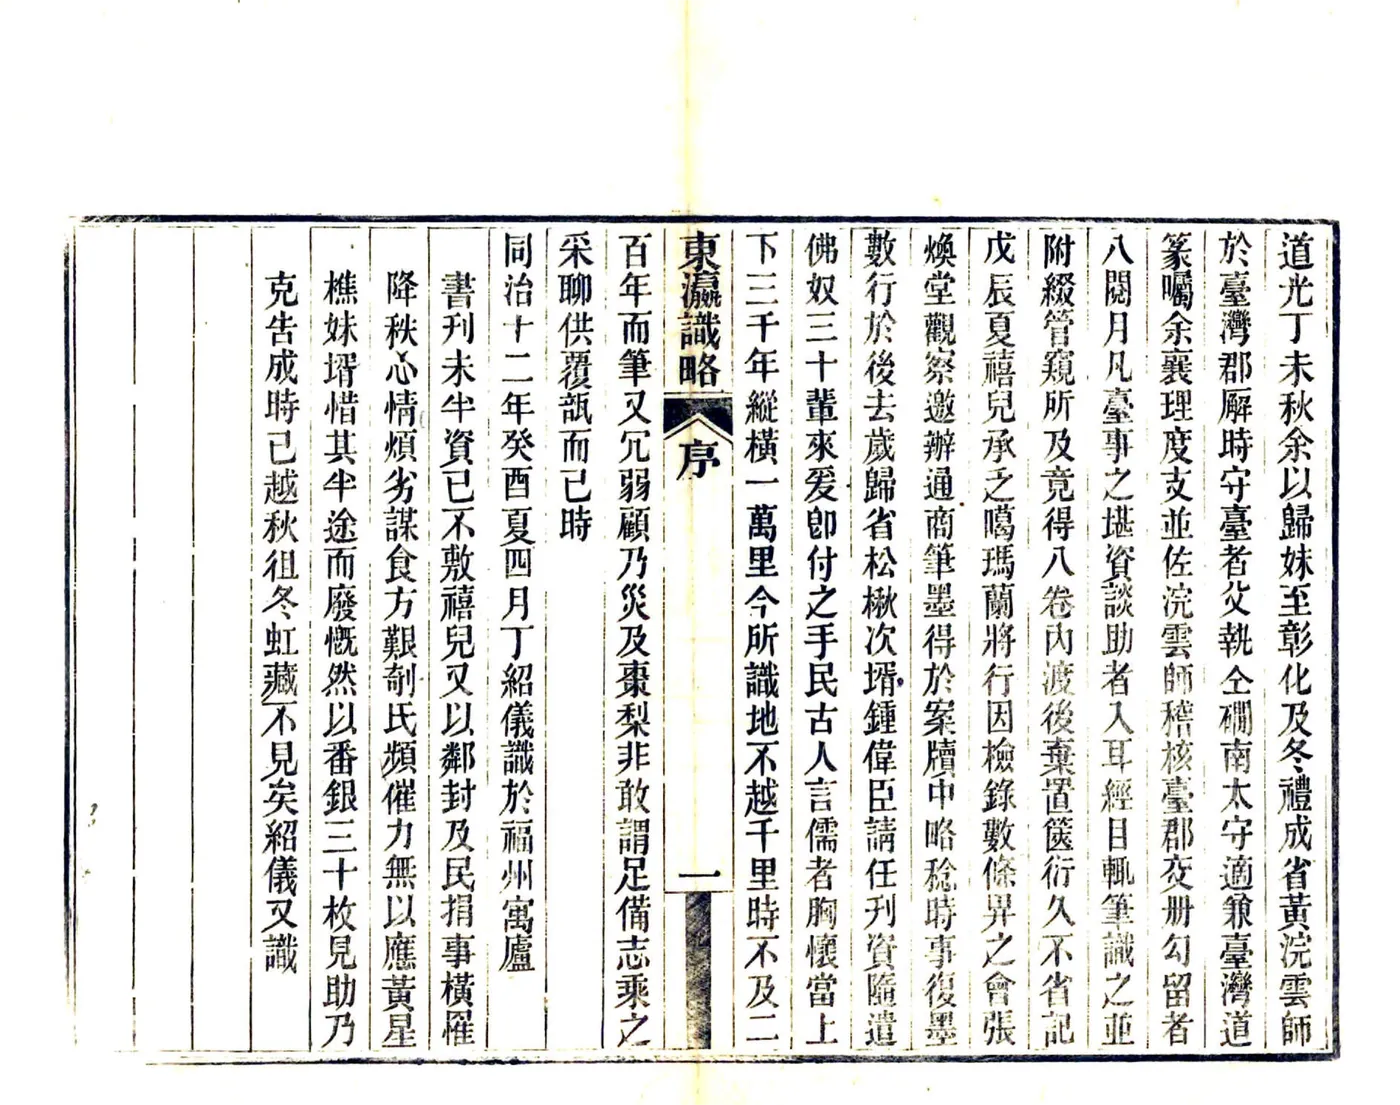 道光丁未秋余以歸妹至彰化及冬禮成省黃浣雲師
於臺灣郡廨時守臺者父執仝磵南太守適兼臺灣道
篆囑余襄理度支並佐浣雲師稽核臺郡交册勾留者
八閱月凡臺事之堪資談助者入耳經目輒筆識之並
附綴管窺所及竟得八卷內渡後棄置篋衍久不省記
戊辰夏禧兒承乏噶瑪蘭將行因檢錄數條昇之會張
煥堂觀察邀辦通商筆墨得於案牘中略稔時事復墨
數行於後去歲歸省松楸次壻鍾偉臣請任刊資隨遣
佛奴三十輩來爰卽付之手民古人言儒者胸懷當上
下三千年縱橫一萬里今所識地不越千里時不及二
東瀛識略
序
一
百年而筆又冗弱顧乃災及棗梨非敢謂足備志乘之
采聊供覆瓿而已時
同治十二年癸酉夏四月丁紹儀識於福州寓廬
書刊未半資已不敷禧兒又以鄰封及民捐事橫罹
降秋心情煩劣謀食方艱剞氏頻催力無以應黃星
樵妹壻惜其半途而廢慨然以番銀三十枚見助乃
克告成時已越秋徂冬虹藏不見矣紹儀又識